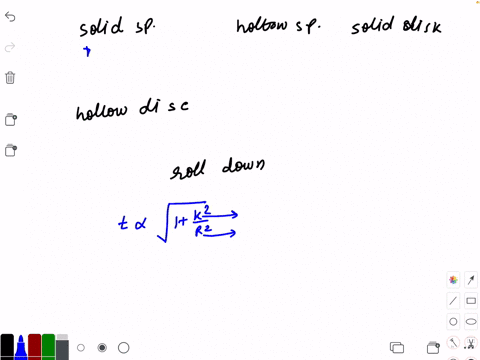 solid sp. hollow sp. solid disk
hollow disc
roll down
t ∝ √(1+K²/R²)